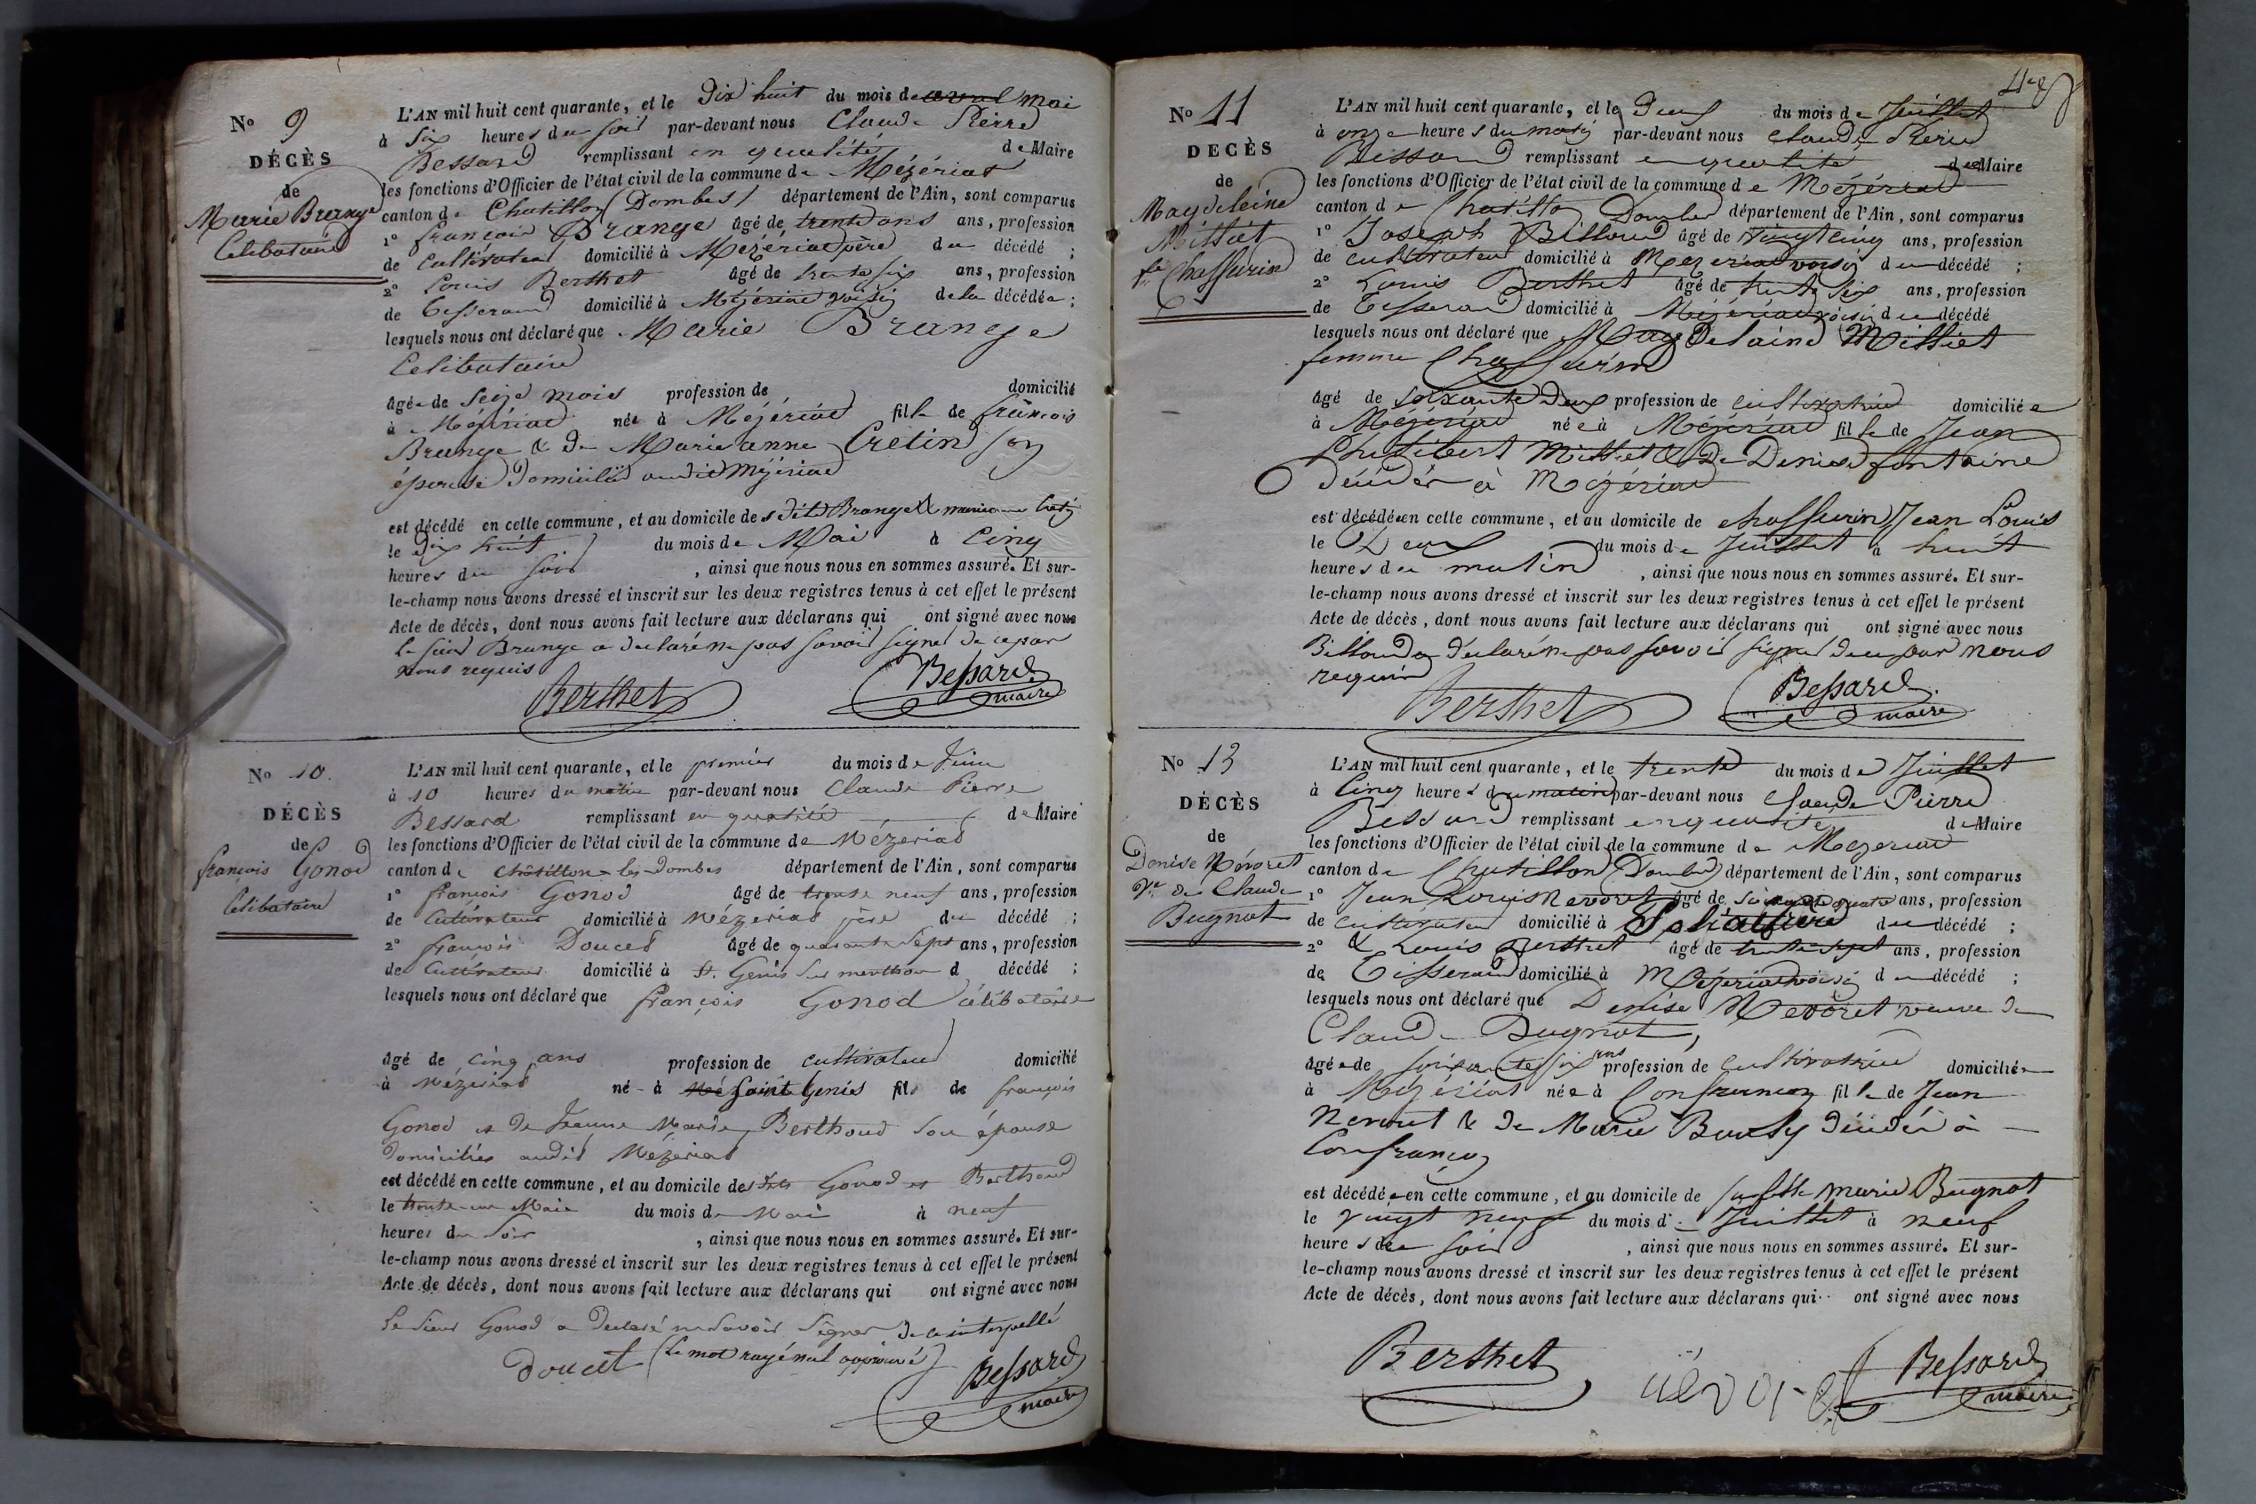 No 9
DÉCÈS
de
Marie Brange
Celibataire
L'AN mil huit cent quarante, et le Dix huit du mois de avril mai
à Six heures du soir par-devant nous Claude Pierre
Bessard remplissant en qualité de Maire
les fonctions d'Officier de l'état civil de la commune de Mézériat
canton de Chatillon (Dombes) département de l'Ain, sont comparus
1° françois Brange âgé de trente ans ans, profession
de Cultivateur domicilié à Mézériat père du décédé ;
2° Louis Berthet âgé de trente six ans, profession
de Tisserand domicilié à Mézériat voisin de la décédée ;
lesquels nous ont déclaré que Marie Brange
Celibataire
âgée de Seize mois profession de domicilié
à Mézériat née à Mézériat fille de françois
Brange & de Marie anne Cretin son
épouse Domiciliés audit Mézériat
est décédé en cette commune, et au domicile des dits Brange &
le dix huit du mois de Mai à Cinq
heures du soir , ainsi que nous nous en sommes assuré. Et sur-
le-champ nous avons dressé et inscrit sur les deux registres tenus à cet effet le présent
Acte de décès, dont nous avons fait lecture aux déclarans qui ont signé avec nous
le sieur Brange a declaré ne pas savoir signer de ce par
nous requis
Berthet Bessard
maire
No 10.
DÉCÈS
de
françois Gonod
Célibataire
L'AN mil huit cent quarante, et le premier du mois de Juin
à 10 heures du matin par-devant nous Claude Pierre
Bessard remplissant en qualité de Maire
les fonctions d'Officier de l'état civil de la commune de Mézériat
canton de Châtillon-les-Dombes département de l'Ain, sont comparus
1° françois Gonod âgé de trente neuf ans, profession
de Cultivateur domicilié à Mézériat père du décédé ;
2° françois Doucet âgé de quarante Sept ans, profession
de Cultivateur domicilié à St. Genis sur menthon d décédé ;
lesquels nous ont déclaré que françois Gonod célibataire
âgé de cinq ans profession de cultivateur domicilié
à Mézériat né à Méz Saint Genis fils de françois
Gonod et de Jeanne Marie Berthoud son épouse
domiciliés audit Mézériat
est décédé en cette commune, et au domicile des dits Gonod et Berthoud
le trente un Mai du mois de Mai à neuf
heures du Soir , ainsi que nous nous en sommes assuré. Et sur-
le-champ nous avons dressé et inscrit sur les deux registres tenus à cet effet le présent
Acte de décès, dont nous avons fait lecture aux déclarans qui ont signé avec nous
Le Sieur Gonod a declaré ne savoir Signer de ce interpellé
Doucet (le mot rayé nul approuvé) Bessard
maire
No 11
DECÈS
de
Magdeleine
Milliet
fe Chassurin
L'AN mil huit cent quarante, et le Deux du mois de Juillet
à onze heures du matin par-devant nous Claude Pierre
Bessard remplissant en qualité de Maire
les fonctions d'Officier de l'état civil de la commune de Mézériat
canton de Chatillon Dombes département de l'Ain, sont comparus
1° Joseph Billoud âgé de vingt cinq ans, profession
de cultivateur domicilié à Mézériat voisin du décédé ;
2° Louis Berthet âgé de trente six ans, profession
de Tisserand domicilié à Mézériat voisin du décédé
lesquels nous ont déclaré que Magdelaine Milliet
femme Chassurin
âgé de soixante Deux profession de cultivatrice domiciliée
à Mézériat née à Mézériat fille de Jean
Philibert Milliet & De Denise fontaine
décédés à Mézériat
est décédée en cette commune, et au domicile de chassurin Jean Louis
le Deux du mois de Juillet à huit
heures du matin , ainsi que nous nous en sommes assuré. Et sur-
le-champ nous avons dressé et inscrit sur les deux registres tenus à cet effet le présent
Acte de décès, dont nous avons fait lecture aux déclarans qui ont signé avec nous
Billoud a declaré ne pas savoir signer de ce par nous
requis
Berthet Bessard
maire
No 13
DÉCÈS
de
Denise Névoret
Ve de Claude
Bugnot
L'AN mil huit cent quarante, et le trente du mois de Juillet
à Cinq heures du matin par-devant nous Claude Pierre
Bessard remplissant en qualité de Maire
les fonctions d'Officier de l'état civil de la commune de Mézériat
canton de Chatillon Dombes département de l'Ain, sont comparus
1° Jean Louis Nevoret âgé de soixante quatre ans, profession
de cultivateur domicilié à du décédé ;
2° & Louis Berthet âgé de trente sept ans, profession
de Tisserand domicilié à Mézériat voisin du décédé ;
lesquels nous ont déclaré que Denise Nevoret veuve de
Claude Bugnot,
âgée de soixante six ans profession de cultivatrice domiciliée
à Mézériat née à Confrançon fille de Jean
Nevoret & de Marie Bouly décédés à
Confrançon
est décédée en cette commune, et au domicile de sa fille marie Bugnot
le vingt neuf du mois de Juillet à neuf
heures du soir , ainsi que nous nous en sommes assuré. Et sur-
le-champ nous avons dressé et inscrit sur les deux registres tenus à cet effet le présent
Acte de décès, dont nous avons fait lecture aux déclarans qui ont signé avec nous
Berthet Bessard
maire